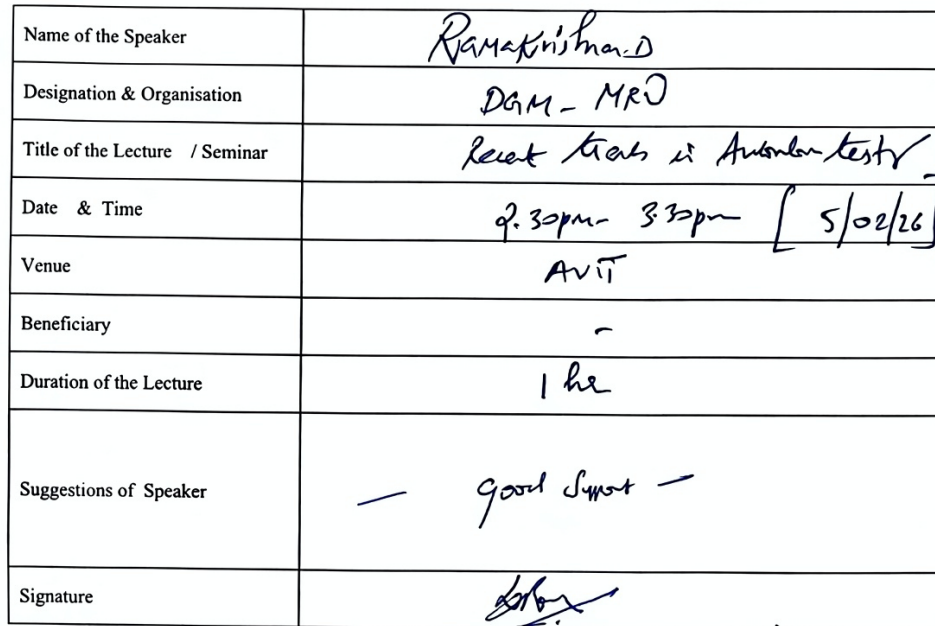 Name of the Speaker RamaKrishnan.D
Designation & Organisation DGM - MRO
Title of the Lecture / Seminar Recent trends in
Date & Time 2.30pm - 3.30pm [ 5/02/26 ]
Venue AVIT
Beneficiary -
Duration of the Lecture 1 hr
Suggestions of Speaker — Good Support —
Signature